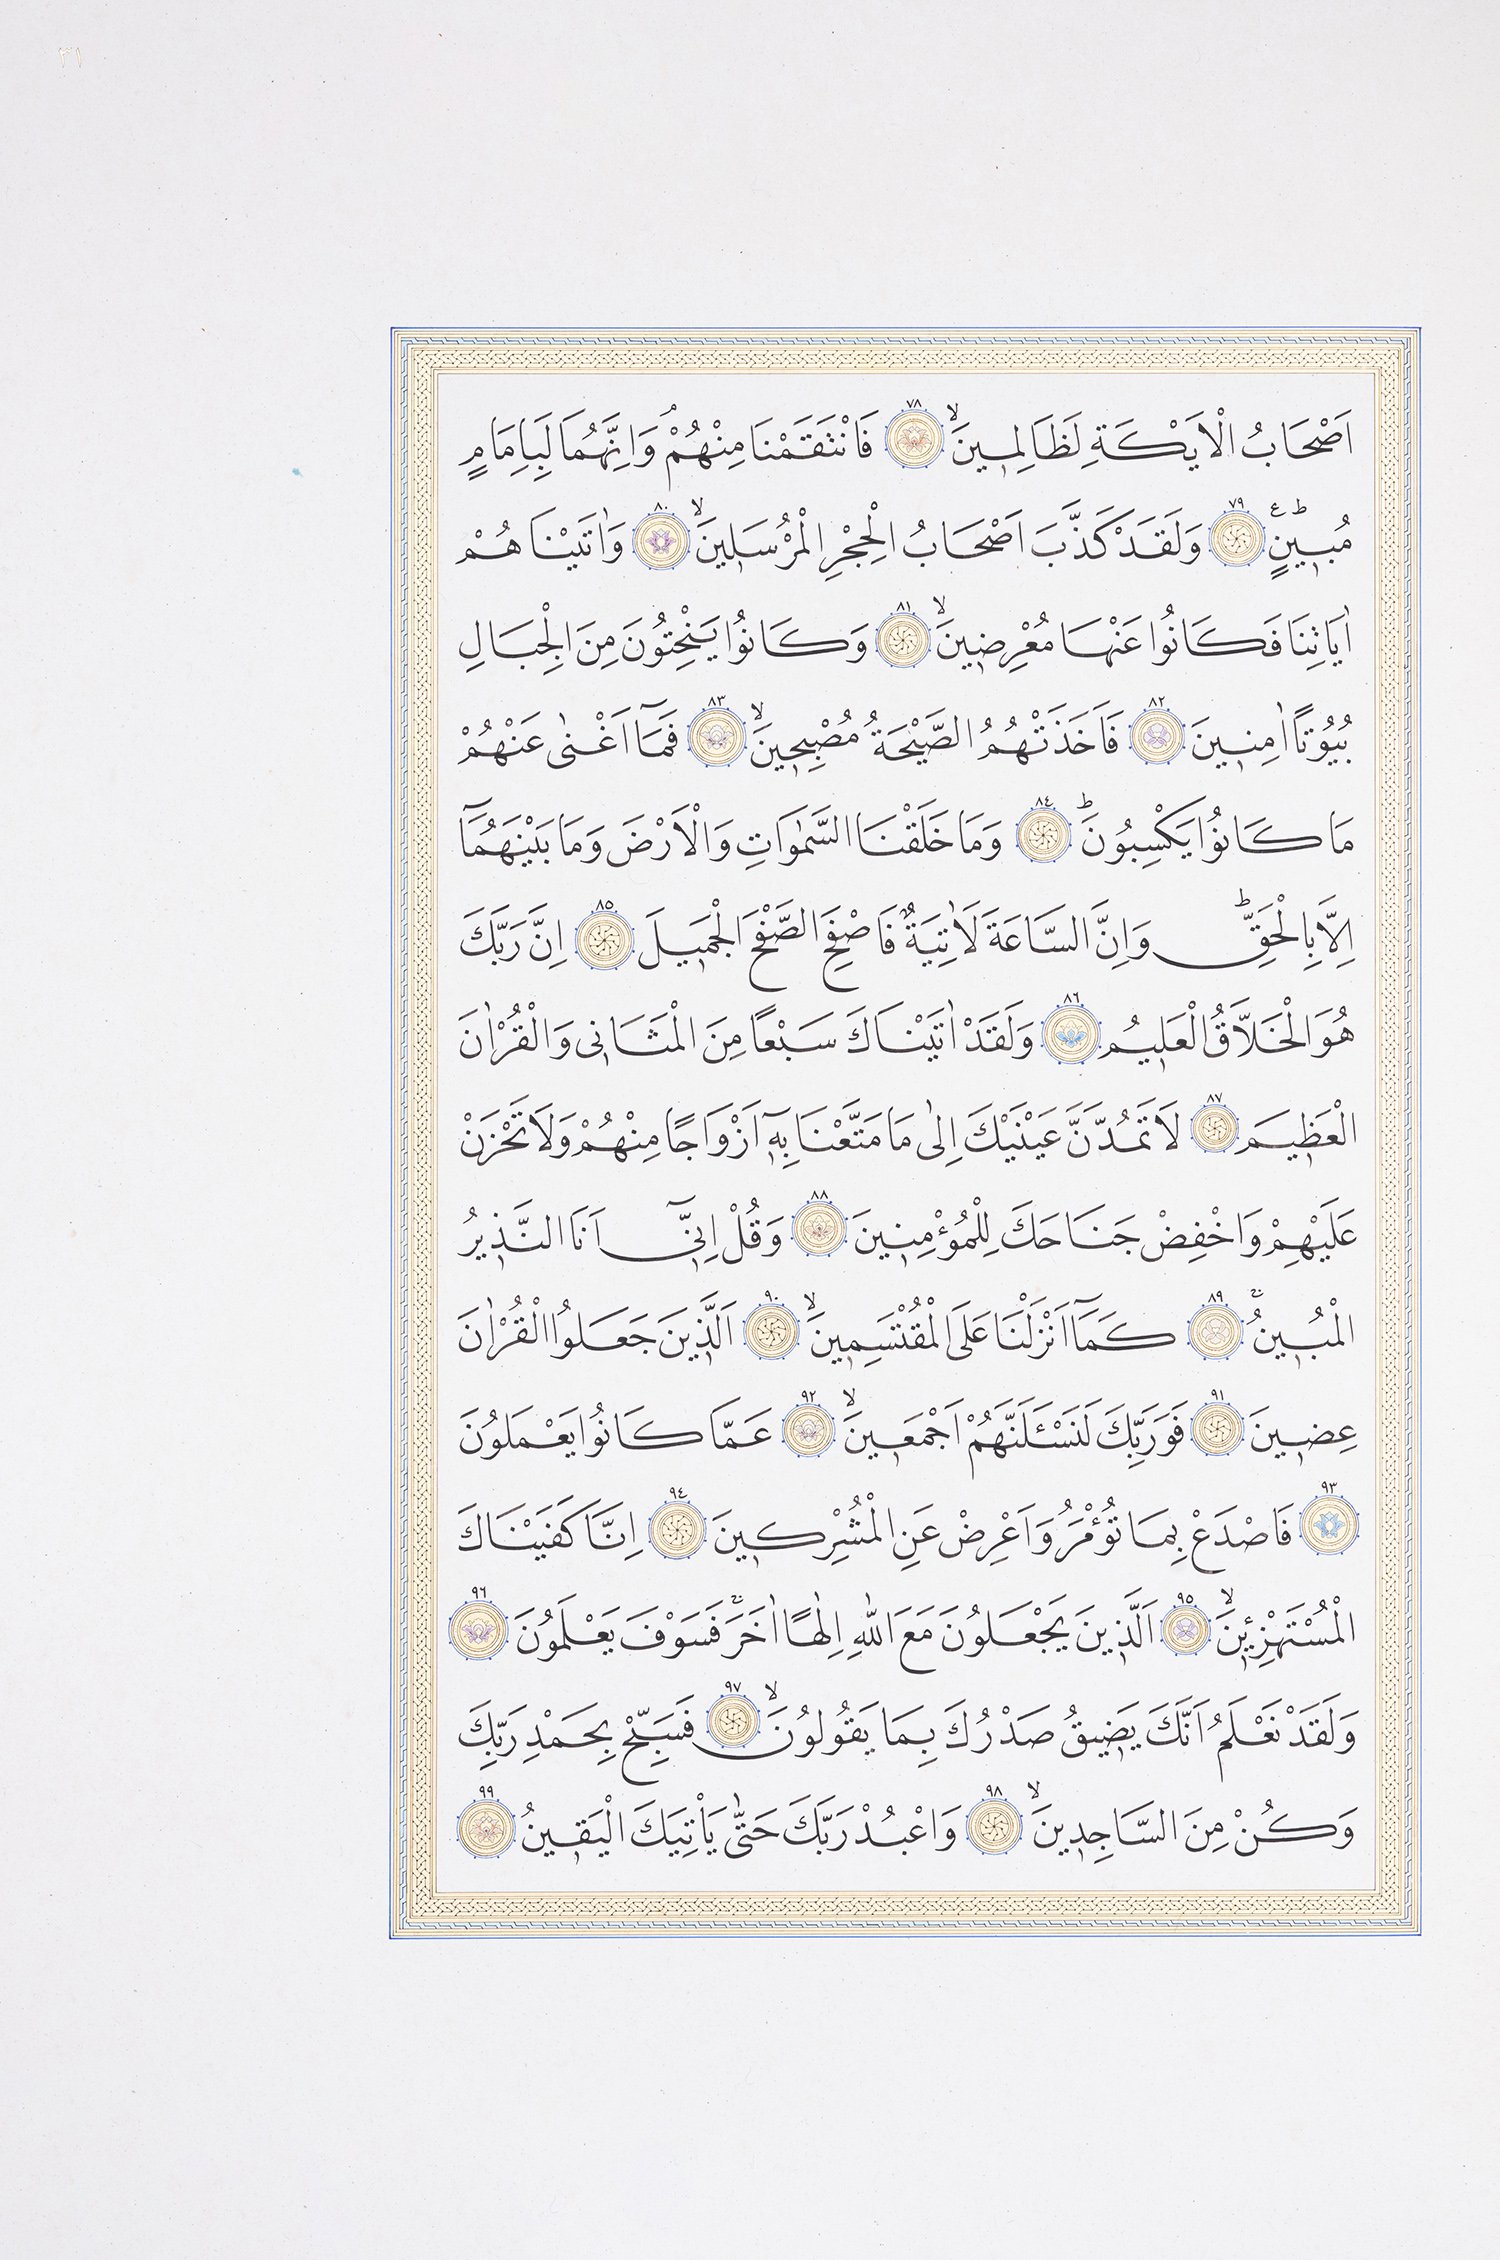 ٣١
اَصْحَابُ الْاَيْكَةِ لَظَالِمٖينَۙ ٧٨ فَانْتَقَمْنَا مِنْهُمْۘ وَاِنَّهُمَا لَبِاِمَامٍ
مُبٖينٍؕ ع ٧٩ وَلَقَدْ كَذَّبَ اَصْحَابُ الْحِجْرِ الْمُرْسَلٖينَۙ ٨٠ وَاٰتَيْنَاهُمْ
اٰيَاتِنَا فَكَانُوا عَنْهَا مُعْرِضٖينَۙ ٨١ وَكَانُوا يَنْحِتُونَ مِنَ الْجِبَالِ
بُيُوتًا اٰمِنٖينَ ٨٢ فَاَخَذَتْهُمُ الصَّيْحَةُ مُصْبِحٖينَۙ ٨٣ فَمَٓا اَغْنٰى عَنْهُمْ
مَا كَانُوا يَكْسِبُونَؕ ٨٤ وَمَا خَلَقْنَا السَّمٰوَاتِ وَالْاَرْضَ وَمَا بَيْنَهُمَٓا
اِلَّا بِالْحَقِّؕ وَاِنَّ السَّاعَةَ لَاٰتِيَةٌ فَاصْفَحِ الصَّفْحَ الْجَمٖيلَ ٨٥ اِنَّ رَبَّكَ
هُوَ الْخَلَّاقُ الْعَلٖيمُ ٨٦ وَلَقَدْ اٰتَيْنَاكَ سَبْعًا مِنَ الْمَثَانٖى وَالْقُرْاٰنَ
الْعَظٖيمَ ٨٧ لَا تَمُدَّنَّ عَيْنَيْكَ اِلٰى مَا مَتَّعْنَا بِهٖٓ اَزْوَاجًا مِنْهُمْ وَلَا تَحْزَنْ
عَلَيْهِمْ وَاخْفِضْ جَنَاحَكَ لِلْمُؤْمِنٖينَ ٨٨ وَقُلْ اِنّٖٓى اَنَا النَّذٖيرُ
الْمُبٖينُۚ ٨٩ كَمَٓا اَنْزَلْنَا عَلَى الْمُقْتَسِمٖينَۙ ٩٠ اَلَّذٖينَ جَعَلُوا الْقُرْاٰنَ
عِضٖينَ ٩١ فَوَرَبِّكَ لَنَسْـَٔلَنَّهُمْ اَجْمَعٖينَۙ ٩٢ عَمَّا كَانُوا يَعْمَلُونَ
٩٣ فَاصْدَعْ بِمَا تُؤْمَرُ وَاَعْرِضْ عَنِ الْمُشْرِكٖينَ ٩٤ اِنَّا كَفَيْنَاكَ
الْمُسْتَهْزِءٖينَۙ ٩٥ اَلَّذٖينَ يَجْعَلُونَ مَعَ اللّٰهِ اِلٰهًا اٰخَرَۚ فَسَوْفَ يَعْلَمُونَ ٩٦
وَلَقَدْ نَعْلَمُ اَنَّكَ يَضٖيقُ صَدْرُكَ بِمَا يَقُولُونَۙ ٩٧ فَسَبِّحْ بِحَمْدِ رَبِّكَ
وَكُنْ مِنَ السَّاجِدٖينَۙ ٩٨ وَاعْبُدْ رَبَّكَ حَتّٰى يَاْتِيَكَ الْيَقٖينُ ٩٩